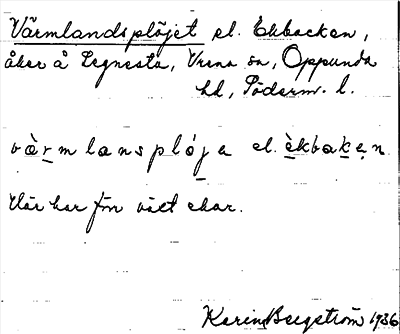 Värmlandsplöjet el. Ekbacken,
åker å Segnesta, Vrena sn, Oppunda
hd, Söderm. l.
vàr̲mlansplój̲a el. èkbak̲e̲n
Här har förr växt ekar.
Karin Bergström 1936